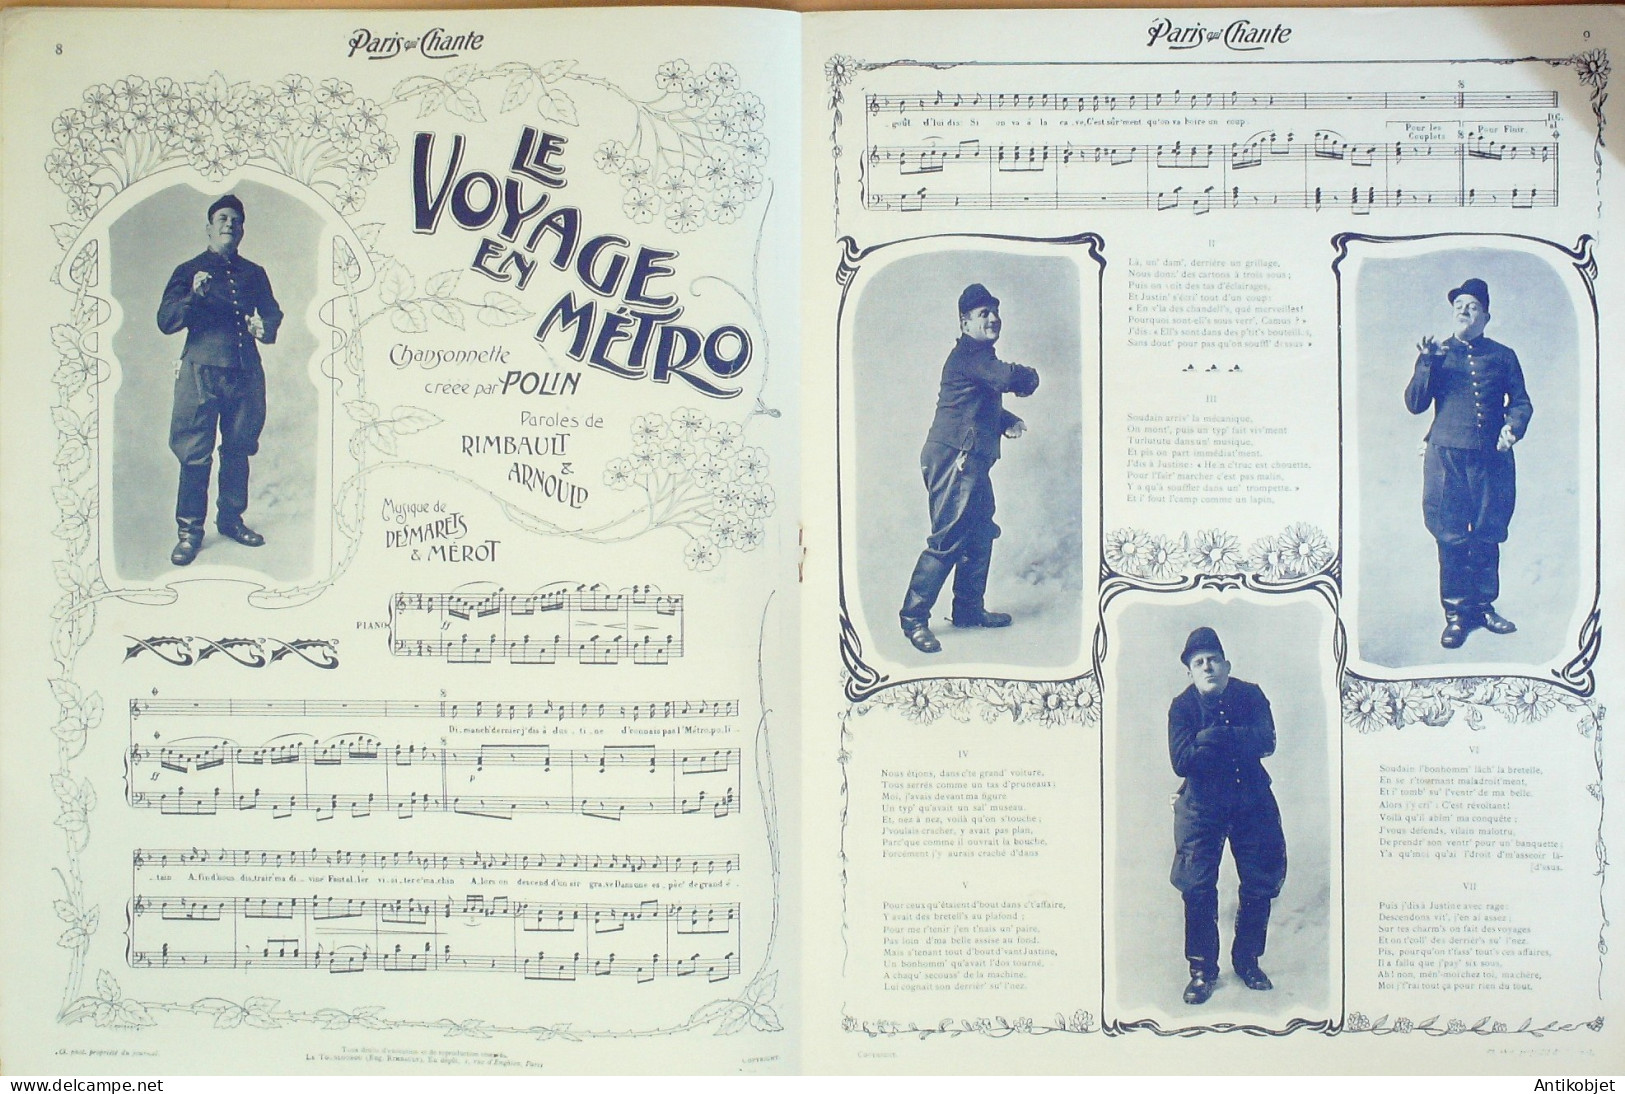 8
Paris qui Chante
LE
VOYAGE
EN
MÉTRO
Chansonnette
créée par POLIN
Paroles de
RIMBAULT
&
ARNOULD
Musique de
DESMARETS
& MÉROT
PIANO
Dimanch' dernier j'dis à Jus - ti - ne
tain A-fin d'nous dis-trair' ma di - vine Faut al-ler vi-si-ter c'ma-chin A-lors on descend d'un air gra-ve Dans une es-pèc' de grand é-
Tous droits d'exécution et de reproduction réservés.
COPYRIGHT
Paris qui Chante
9
-goût J'lui dis: Si on va à la ca-ve, C'est sûr'ment qu'on va boire un coup.
Pour les
Couplets
Pour Finir
D.C.
al
II
Là, un' dam', derrière un grillage,
Nous donn' des cartons à trois sous;
Puis on voit des tas d'éclairages,
Et Justin' s'écri' tout d'un coup:
« En v'là des chandell's, qué merveilles!
Pourquoi sont-ell's sous verr', Camus? »
J'dis: « Ell's sont dans des p'tit's bouteill's,
Sans dout' pour pas qu'on souffl' dessus »
III
Soudain arriv' la mécanique,
On mont', puis un typ' fait viv'ment
Turlututu dans un' musique,
Et pis on part immédiat'ment.
J'dis à Justine: « Hein c'truc est chouette,
Pour l'fair' marcher c'est pas malin,
Y a qu'à souffler dans un' trompette. »
Et i' fout l'camp comme un lapin,
IV
Nous étions, dans c'te grand' voiture,
Tous serrés comme un tas d'pruneaux;
Moi, j'avais devant ma figure
Un typ' qu'avait un sal' museau.
Et, nez à nez, voilà qu'on s'touche;
J'voulais cracher, y avait pas plan,
Parc'que comme il ouvrait la bouche,
Forcément j'y aurais craché d'dans
V
Pour ceus qu'étaient d'bout dans c't'affaire,
Y avait des bretell's au plafond;
Pour me r'tenir j'en t'nais un' paire,
Pas loin d'ma belle assise au fond.
Mais s'tenant tout d'bout d'vant Justine,
Un bonhomm' qu'avait l'dos tourné,
A chaqu' secouss' de la machine,
Lui cognait son derrièr' su' l'nez.
VI
Soudain l'bonhomm' lâch' la bretelle,
En se r'tournant maladroit'ment,
Et i' tomb' su' l'ventr' de ma belle.
Alors j'y cri': C'est révoltant!
Voilà qu'il abîm' ma conquête;
J'vous défends, vilain malotru,
De prendr' son ventr' pour un' banquette;
Y'a qu'moi qu'ai l'droit d'm'asseoir là-
[d'ssus.
VII
Puis j'dis à Justine avec rage:
Descendons vit', j'en ai assez;
Sur tes charm's on fait des voyages
Et on t'coll' des derrièr's su' l'nez.
Pis, pourqu'on t'fass' tout's ces affaires,
Il a fallu que j'pay' six sous,
Ah! non, mén'-moi chez toi, ma chère,
Moi j't'f'rai tout ça pour rien du tout.
COPYRIGHT
Antikobjet